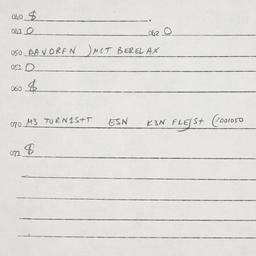 040 $
041 0 042 0
050 BAVORFN )MCT BERELAX
052 0
060 $
070 M3 TURNIS+T ESN K3N FLEJS+ (1001050
072 $